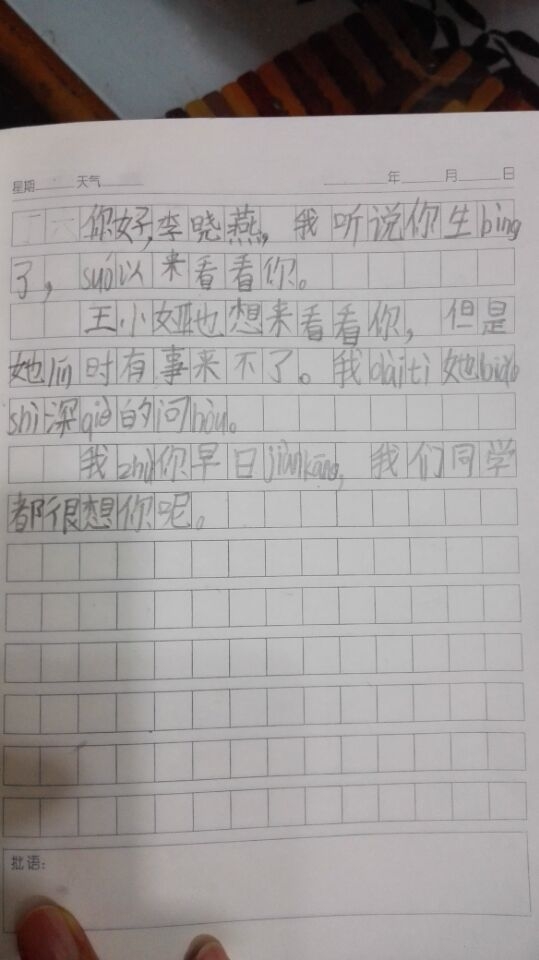 星期 天气 年 月 日
你好,李晓燕,我听说你生bìng
了,suó以来看看你。
王小娅也想来看看你,但是
她lín时有事来不了。我dàitì她biǎo
shì深qiè的问hòu。
我zhù你早日jiànkāng,我们同学
都很想你呢。
批语: